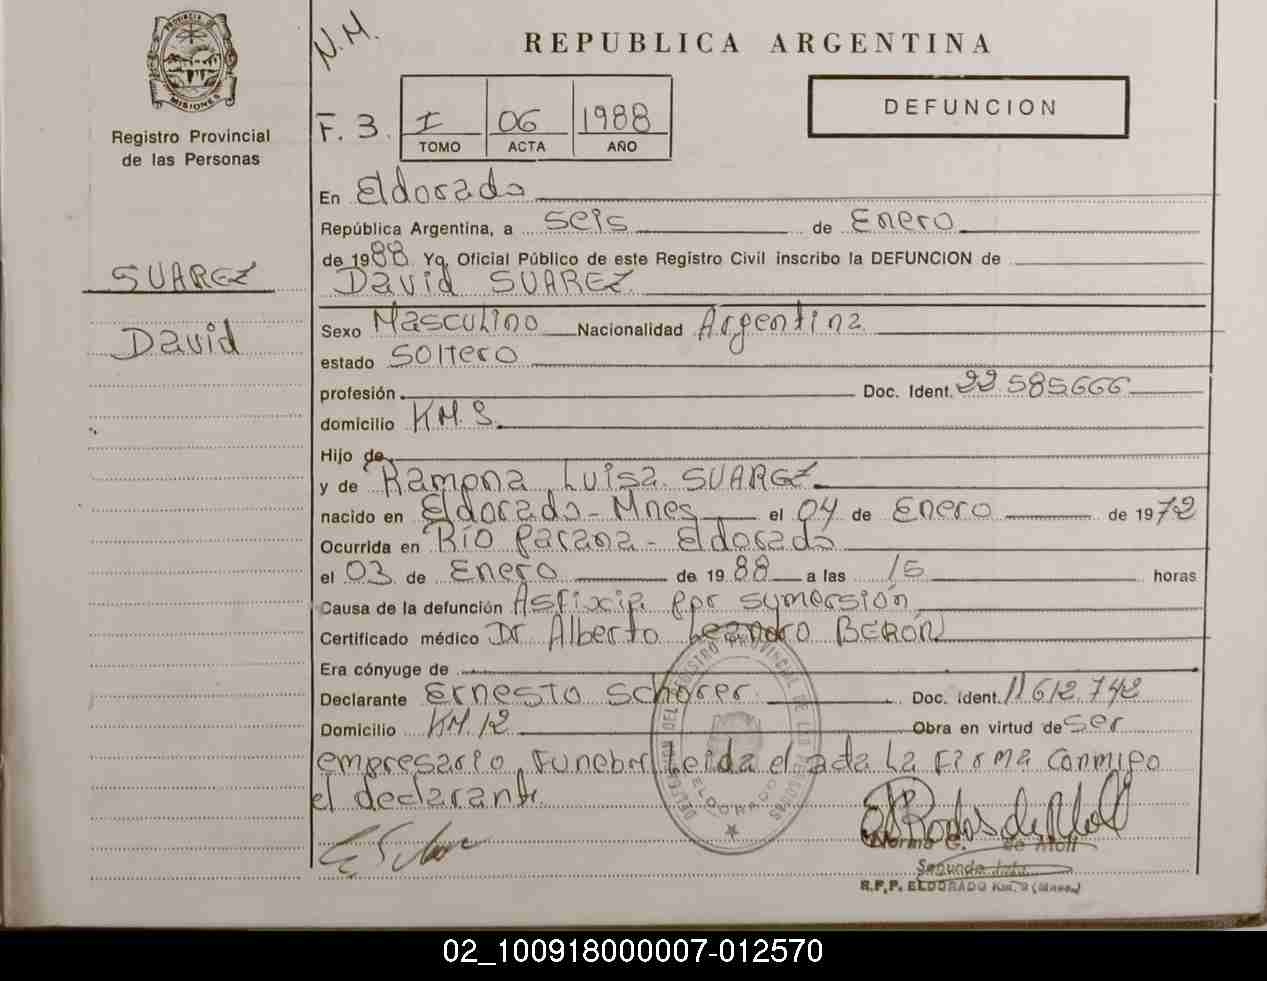 PROVINCIA DE
MISIONES
Registro Provincial
de las Personas
SUAREZ
David
N.M.
REPUBLICA ARGENTINA
F. 3. I 06 1988
TOMO ACTA AÑO
DEFUNCION
En Eldorado
República Argentina, a seis de Enero
de 1988 Yo, Oficial Público de este Registro Civil inscribo la DEFUNCION de
David SUAREZ
Sexo Masculino Nacionalidad Argentina
estado Soltero
profesión Doc. Ident. 22.585666
domicilio KM. 8.
Hijo de
y de Ramona Luisa SUAREZ
nacido en Eldorado - Mnes el 04 de Enero de 1972
Ocurrida en Río Parana - Eldorado
el 03 de Enero de 1988 a las 15 horas
Causa de la defunción Asfixia por sumersión
Certificado médico Dr Alberto Leandro BERON
Era cónyuge de
Declarante Ernesto Schorer Doc. ident. 11.612.742
Domicilio KM. 12 Obra en virtud de ser
empresario Funebre Leida el acta La Firma conmigo
el declarante
ELDORADO
Norma G. de Moll
R.P.P. ELDORADO Km. 9
02_100918000007-012570